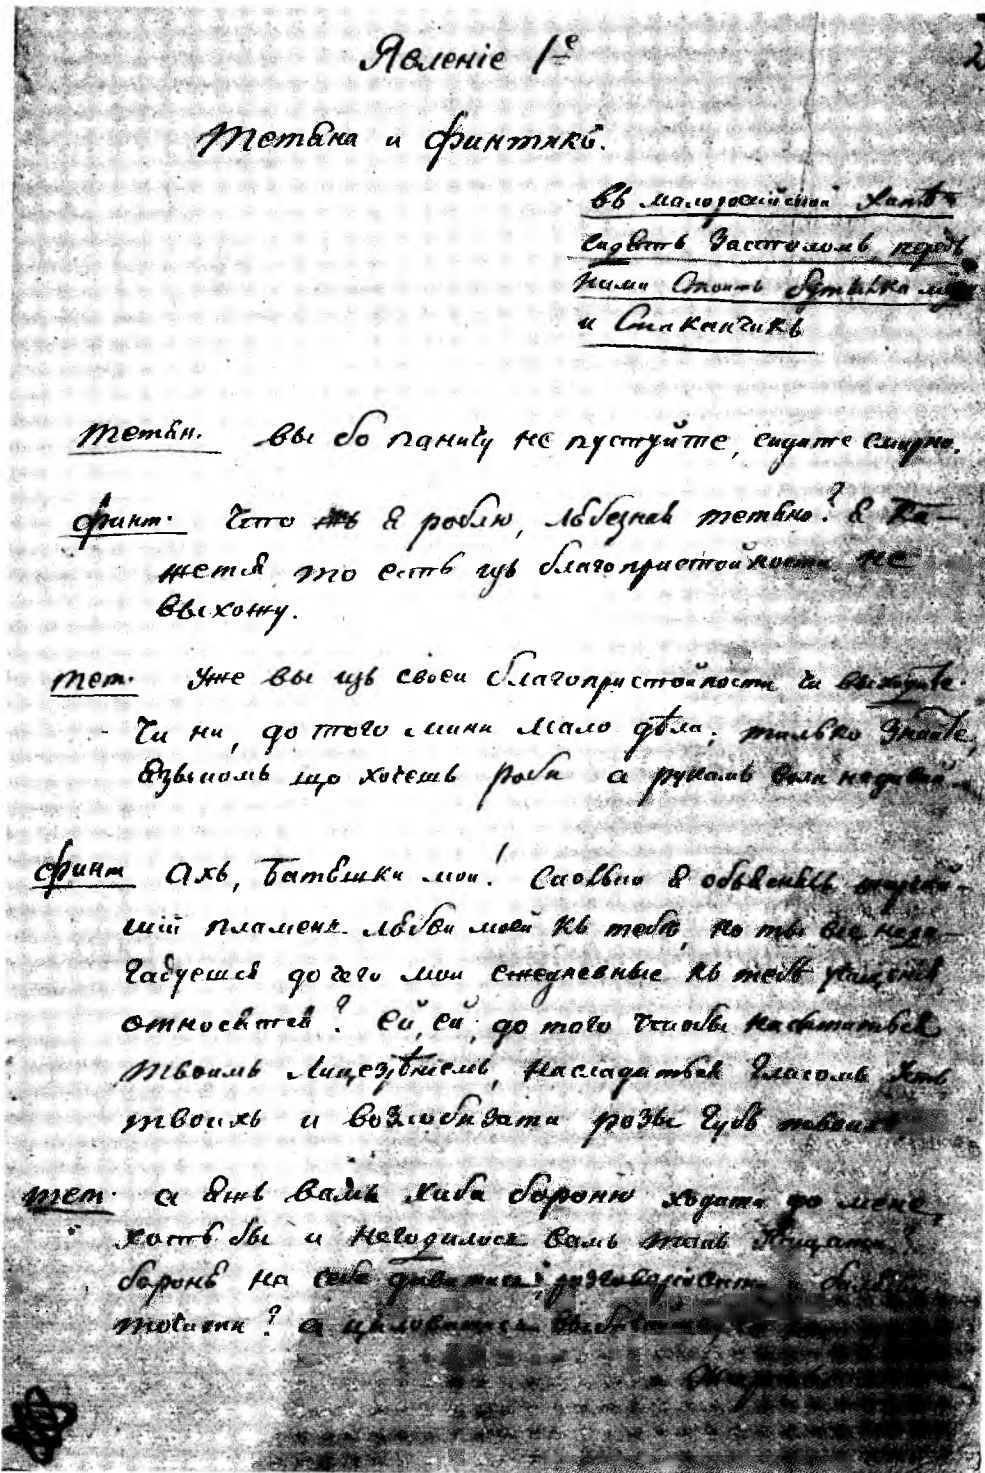 Явленіе 1е
2
Тетяна и Финтикъ.
въ малоросийской хатѣ
сидятъ застоломъ, передъ
ними стоитъ бутылка
и стаканчикъ
Тетян. вы бо паничу не пустуйте, сидите смирно.
Финт. Что я роблю, любезная тетяно? я ка-
жется, то есть изъ благопристойности не
выхожу.
Тет. Уже вы изъ своеи благопристойности чи выходите
чи ни, до того мини мало дѣла; тилько знайте,
языкомъ що хочешь роби а рукамъ воли недавай
Финт Ахъ, Батюшки мои! Сколько я объяснялъ
шій пламень любви моей къ тебѣ, но ты все нера-
чадуешся до чего мои ежедневные къ тебѣ
относятся? Ей, ей, до того чтобы насытиться
твоимъ лицезрѣніемъ, насладиться гласомъ устъ
твоихъ и возлобизати розы губъ твоихъ
Тет. а яжъ вамъ хиба бороню ходити до мене,
хоть бы и негодилось вамъ
бороню на себе дивитися, розговорювати
точити? а цѣловатися